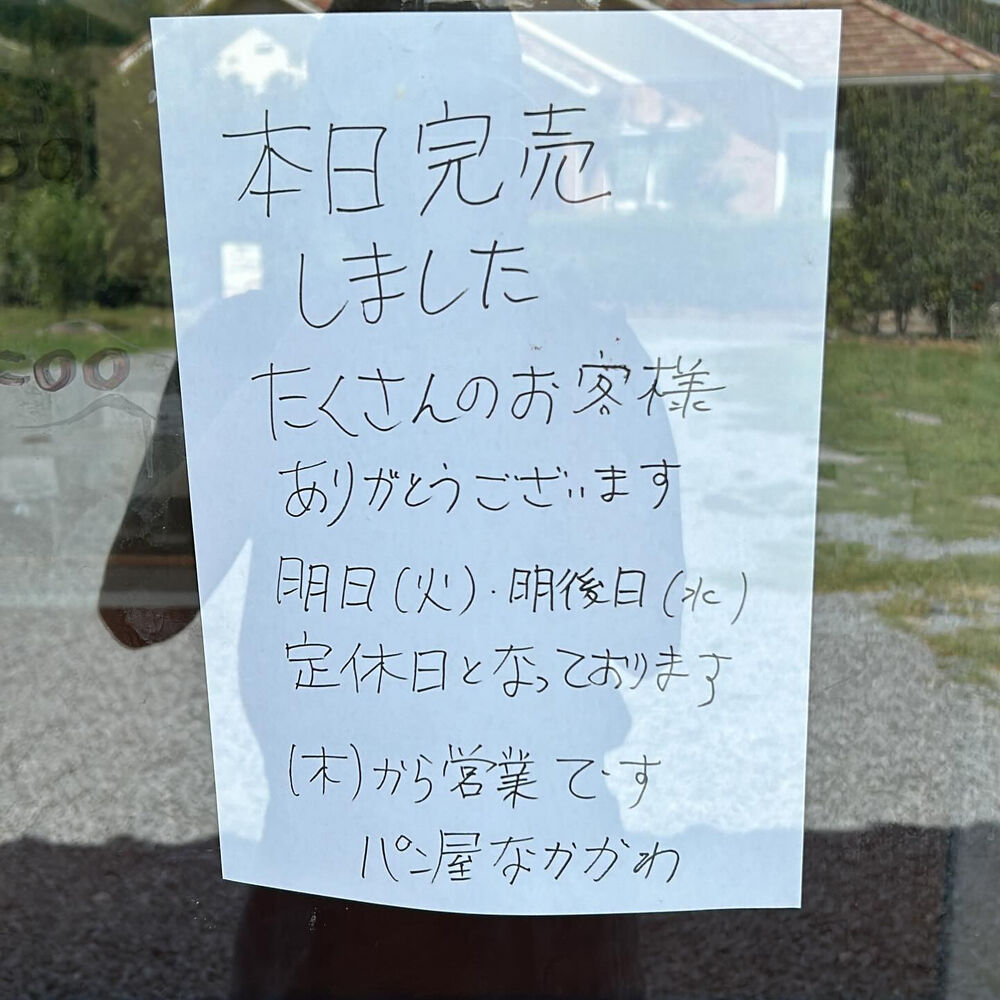 本日完売
しました
たくさんのお客様
ありがとうございます
明日(火)・明後日(水)
定休日となっております
(木)から営業です
パン屋なかがわ